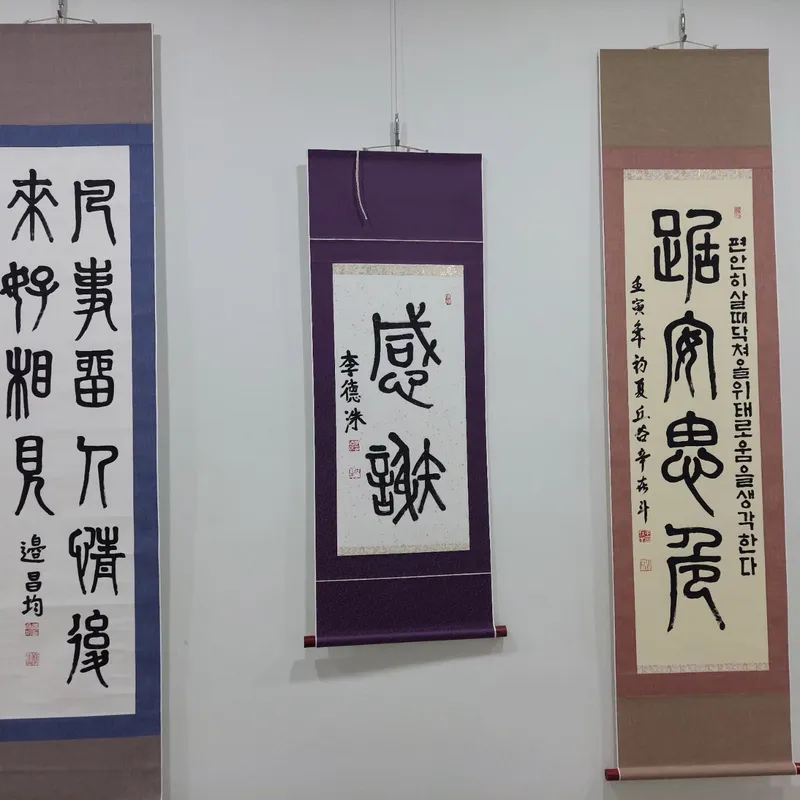 凡事留人情後
來好相見
邊昌均
感謝
李德洙
편안히살때닥쳐올위태로움을생각한다
踞安思危
壬寅年初夏丘谷辛在斗